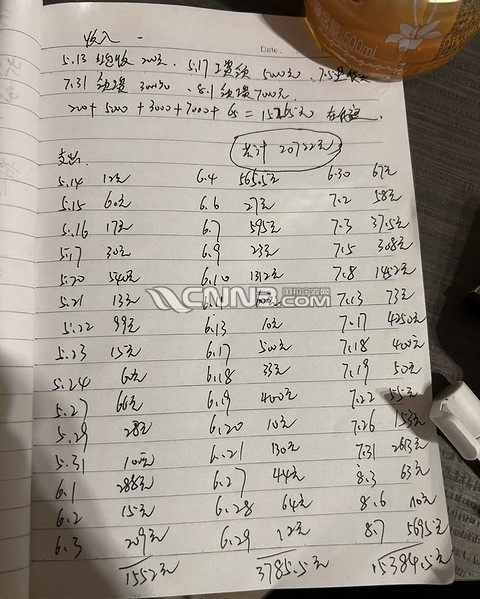 收入
Date.
5.13 红包收 200元. 5.17 工资领 5000元
7.31 领 3000元 . 8.1 领 7000元.
200+5000+3000+7000+65=15265元
共计 20722元
支出:
5.14 12元 6.4 565.5元 6.30 67元
5.15 60元 6.6 27元 7.2 58元
5.16 17元 6.7 595元 7.3 37.5元
5.17 30元 6.9 23元 7.5 308元
5.20 540元 6.10 1312元 7.8 1452元
5.21 13元 7.13 73元
5.22 99元 6.13 10元 7.17 4250元
5.23 15元 6.17 500元 7.18 400元
5.24 60元 6.18 33元 7.19 50元
5.27 66元 6.19 400元 7.22 55元
5.29 28元 6.20 10元 7.26 153元
5.31 10元 6.21 130元 7.31 2613元
6.1 288元 6.27 44元 8.3 63元
6.2 15元 6.28 64元 8.6 10元
6.3 209元 6.29 12元 8.7 5695元
1552元 3785.5元 15384.5元
CNNB.COM
500ml